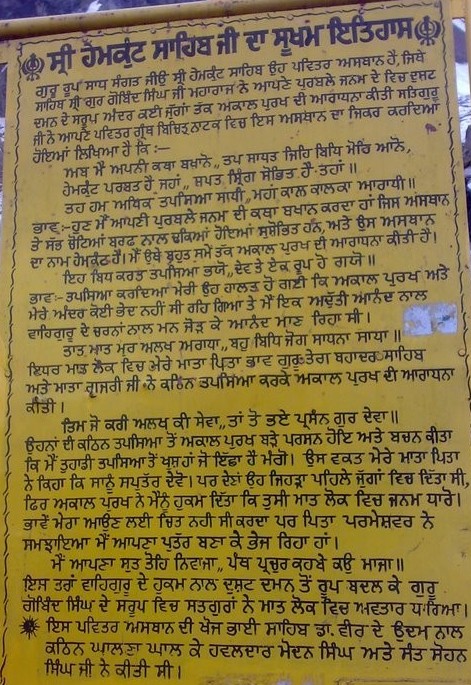 ਸ੍ਰੀ ਹੇਮਕੁੰਟ ਸਾਹਿਬ ਜੀ ਦਾ ਸੂਖਮ ਇਤਿਹਾਸ
ਗੁਰੂ ਰੂਪ ਸਾਧ ਸੰਗਤ ਜੀਓ ਸ੍ਰੀ ਹੇਮਕੁੰਟ ਸਾਹਿਬ ਉਹ ਪਵਿਤਰ ਅਸਥਾਨ ਹੈ, ਜਿਥੇ
ਸਾਹਿਬ ਸ੍ਰੀ ਗੁਰ ਗੋਬਿੰਦ ਸਿੰਘ ਜੀ ਮਹਾਰਾਜ ਨੇ ਆਪਣੇ ਪੂਰਬਲੇ ਜਨਮ ਦੇ ਵਿਚ ਦੁਸਟ
ਦਮਨ ਦੇ ਸਰੂਪ ਅੰਦਰ ਕਈ ਜੁੱਗਾਂ ਤੱਕ ਅਕਾਲ ਪੁਰਖ ਦੀ ਆਰਾਧਨਾ ਕੀਤੀ ਸਤਿਗੁਰੂ
ਜੀ ਨੇ ਆਪਣੇ ਪਵਿਤਰ ਗ੍ਰੰਥ ਬਿਚਿਤ੍ਰ ਨਾਟਕ ਵਿਚ ਇਸ ਅਸਥਾਨ ਦਾ ਜਿਕਰ ਕਰਦਿਆ
ਹੋਇਆਂ ਲਿਖਿਆ ਹੈ ਕਿ :—
ਅਬ ਮੈਂ ਅਪਨੀ ਕਥਾ ਬਖਾਨੋ, ਤਪ ਸਾਧਤ ਜਿਹਿ ਬਿਧਿ ਮੋਹਿ ਆਨੋ,
ਹੇਮਕੁੰਟ ਪਰਬਤ ਹੈ ਜਹਾਂ, ਸਪਤ ਸ੍ਰਿੰਗ ਸੋਭਿਤ ਹੈ ਤਹਾਂ॥
ਤਹ ਹਮ ਅਧਿਕ ਤਪਸਿਆ ਸਾਧੀ, ਮਹਾਂ ਕਾਲ ਕਾਲਕਾ ਆਰਾਧੀ॥
ਭਾਵ :-ਹੁਣ ਮੈਂ ਆਪਣੀ ਪੁਰਬਲੇ ਜਨਮ ਦੀ ਕਥਾ ਬਖਾਨ ਕਰਦਾ ਹਾਂ ਜਿਸ ਅਸਥਾਨ
ਤੇ ਸੱਭ ਚੋਟਿਆਂ ਬਰਫ ਨਾਲ ਢਕਿਆਂ ਹੋਇਆਂ ਸੁਸ਼ੋਭਿਤ ਹਨ, ਅਤੇ ਉਸ ਅਸਥਾਨ
ਦਾ ਨਾਮ ਹੇਮਕੁੰਟ ਹੈ। ਮੈਂ ਉਥੇ ਬਹੁਤ ਸਮੇਂ ਤੱਕ ਅਕਾਲ ਪੁਰਖ ਦੀ ਆਰਾਧਨਾ ਕੀਤੀ ਹੈ।
ਇਹ ਬਿਧਿ ਕਰਤ ਤਪਸਿਆ ਭਯੋ, ਦ੍ਵੈ ਤੇ ਏਕ ਰੂਪ ਹੈ ਗਯੋ॥
ਭਾਵ:- ਤਪਸਿਆ ਕਰਦਿਆਂ ਮੇਰੀ ਉਹ ਹਾਲਤ ਹੋ ਗਈ ਕਿ ਅਕਾਲ ਪੁਰਖ ਅਤੇ
ਮੇਰੇ ਅੰਦਰ ਕੋਈ ਭੇਦ ਨਹੀਂ ਸੀ ਰਹਿ ਗਿਆ ਤੇ ਮੈਂ ਇਕ ਅਦੁੱਤੀ ਆਨੰਦ ਨਾਲ
ਵਾਹਿਗੁਰੂ ਦੇ ਚਰਨਾਂ ਨਾਲ ਮਨ ਜੋੜ ਕੇ ਆਨੰਦ ਮਾਣ ਰਿਹਾ ਸੀ।
ਤਾਤ ਮਾਤ ਮੁਰ ਅਲਖ ਅਰਾਧਾ, ਬਹੁ ਬਿਧਿ ਜੋਗ ਸਾਧਨਾ ਸਾਧਾ॥
ਇਧਰ ਮਾਤ ਲੋਕ ਵਿਚ ਮੇਰੇ ਮਾਤਾ ਪਿਤਾ ਭਾਵ ਗੁਰੂ ਤੇਗ ਬਹਾਦਰ ਸਾਹਿਬ
ਅਤੇ ਮਾਤਾ ਗੁਜਰੀ ਜੀ ਨੇ ਕਠਿਨ ਤਪਸਿਆ ਕਰਕੇ ਅਕਾਲ ਪੁਰਖ ਦੀ ਆਰਾਧਨਾ
ਕੀਤੀ।
ਤਿਮ ਜੋ ਕਰੀ ਅਲਖ ਕੀ ਸੇਵਾ, ਤਾਂ ਤੇ ਭਏ ਪ੍ਰਸੰਨ ਗੁਰ ਦੇਵਾ॥
ਉਹਨਾਂ ਦੀ ਕਠਿਨ ਤਪਸਿਆ ਤੋਂ ਅਕਾਲ ਪੁਰਖ ਬੜੇ ਪਰਸਨ ਹੋਇ ਅਤੇ ਬਚਨ ਕੀਤਾ
ਕਿ ਮੈਂ ਤੁਹਾਡੀ ਤਪਸਿਆ ਤੋਂ ਖੁਸ਼ ਹਾਂ ਜੋ ਇੱਛਾ ਹੈ ਮੰਗੋ। ਉਸ ਵਕਤ ਮੇਰੇ ਮਾਤਾ ਪਿਤਾ
ਨੇ ਕਿਹਾ ਕਿ ਸਾਨੂੰ ਸਪੁਤੱਰ ਦੇਵੋ। ਪਰ ਦੇਣਾਂ ਉਹ ਜਿਹੜਾ ਪਹਿਲੇ ਜੁੱਗਾਂ ਵਿਚ ਦਿੱਤਾ ਸੀ,
ਫਿਰ ਅਕਾਲ ਪੁਰਖ ਨੇ ਮੈਨੂੰ ਹੁਕਮ ਦਿੱਤਾ ਕਿ ਤੁਸੀ ਮਾਤ ਲੋਕ ਵਿਚ ਜਨਮ ਧਾਰੋ।
ਭਾਵੇਂ ਮੇਰਾ ਆਉਣ ਲਈ ਚਿੱਤ ਨਹੀ ਸੀ ਕਰਦਾ ਪਰ ਪਿਤਾ ਪਰਮੇਸ਼ਵਰ ਨੇ
ਸਮਝਾਇਆ ਮੈਂ ਆਪਣਾ ਪੁਤੱਰ ਬਣਾ ਕੇ ਭੇਜ ਰਿਹਾ ਹਾਂ।
ਮੈਂ ਆਪਣਾ ਸੁਤ ਤੋਹਿ ਨਿਵਾਜਾ, ਪੰਥ ਪ੍ਰਚੁਰ ਕਰਬੇ ਕਉ ਸਾਜਾ॥
ਇਸ ਤਰਾਂ ਵਾਹਿਗੁਰੂ ਦੇ ਹੁਕਮ ਨਾਲ ਦੁਸਟ ਦਮਨ ਤੋਂ ਰੂਪ ਬਦਲ ਕੇ ਗੁਰੂ
ਗੋਬਿੰਦ ਸਿੰਘ ਦੇ ਸਰੂਪ ਵਿਚ ਸਤਗੁਰਾਂ ਨੇ ਮਾਤ ਲੋਕ ਵਿਚ ਅਵਤਾਰ ਧਾਰਿਆ।
ਇਸ ਪਵਿਤਰ ਅਸਥਾਨ ਦੀ ਖੋਜ ਭਾਈ ਸਾਹਿਬ ਡਾ. ਵੀਰ ਦੇ ਉਦਮ ਨਾਲ
ਕਠਿਨ ਘਾਲਣਾ ਘਾਲ ਕੇ ਹਵਲਦਾਰ ਮੋਦਨ ਸਿੰਘ ਅਤੇ ਸੰਤ ਸੋਹਨ
ਸਿੰਘ ਜੀ ਨੇ ਕੀਤੀ ਸੀ।